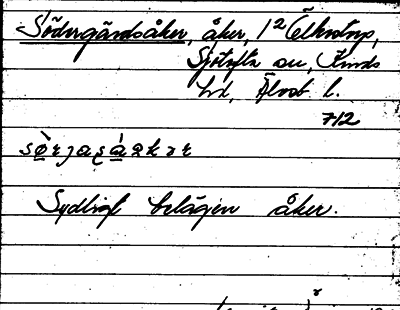 Södergårdsåker, åker, 1² Älhestorp,
Sjötofta sn, Kinds
hd, Älvsb l.
712
Sydligt belägen åker.